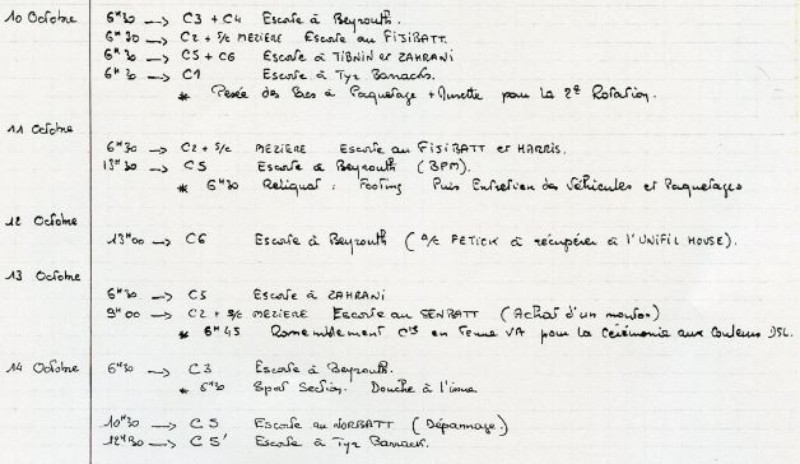 10 Octobre 6H30 → C3 + C4 Escorte à Beyrouth.
6H30 → C2 + S/c MEZIERE Escorte au FISIBATT.
6H30 → C5 + C6 Escorte à TIBNIN et ZAHRANI
6H30 → C1 Escorte à Tyr Barracks.
* Pesée des Sacs à Paquetage + Musette pour la 2e Rotation.
11 Octobre
6H30 → C2 + S/c MEZIERE Escorte au FISIBATT et HARRIS.
13H30 → C5 Escorte à Beyrouth (BPM).
* 6H30 Reliquat : Footing Puis Entretien des Véhicules et Paquetages
12 Octobre
13H00 → C6 Escorte à Beyrouth ( A/c PETICK à récupérer à l'UNIFIL HOUSE).
13 Octobre
6H30 → C5 Escorte à ZAHRANI
9H00 → C2 + S/c MEZIERE Escorte au SENBATT (Achat d'un mouton)
* 6H45 Rassemblement Cie en Tenue VA pour la Cérémonie aux Couleurs DSL.
14 Octobre 6H30 → C3 Escorte à Beyrouth.
* 6H30 Sport Section. Douche à l'issue
10H30 → C5 Escorte au NORBATT ( Dépannage.)
12H30 → C5' Escorte à Tyr Barrack.